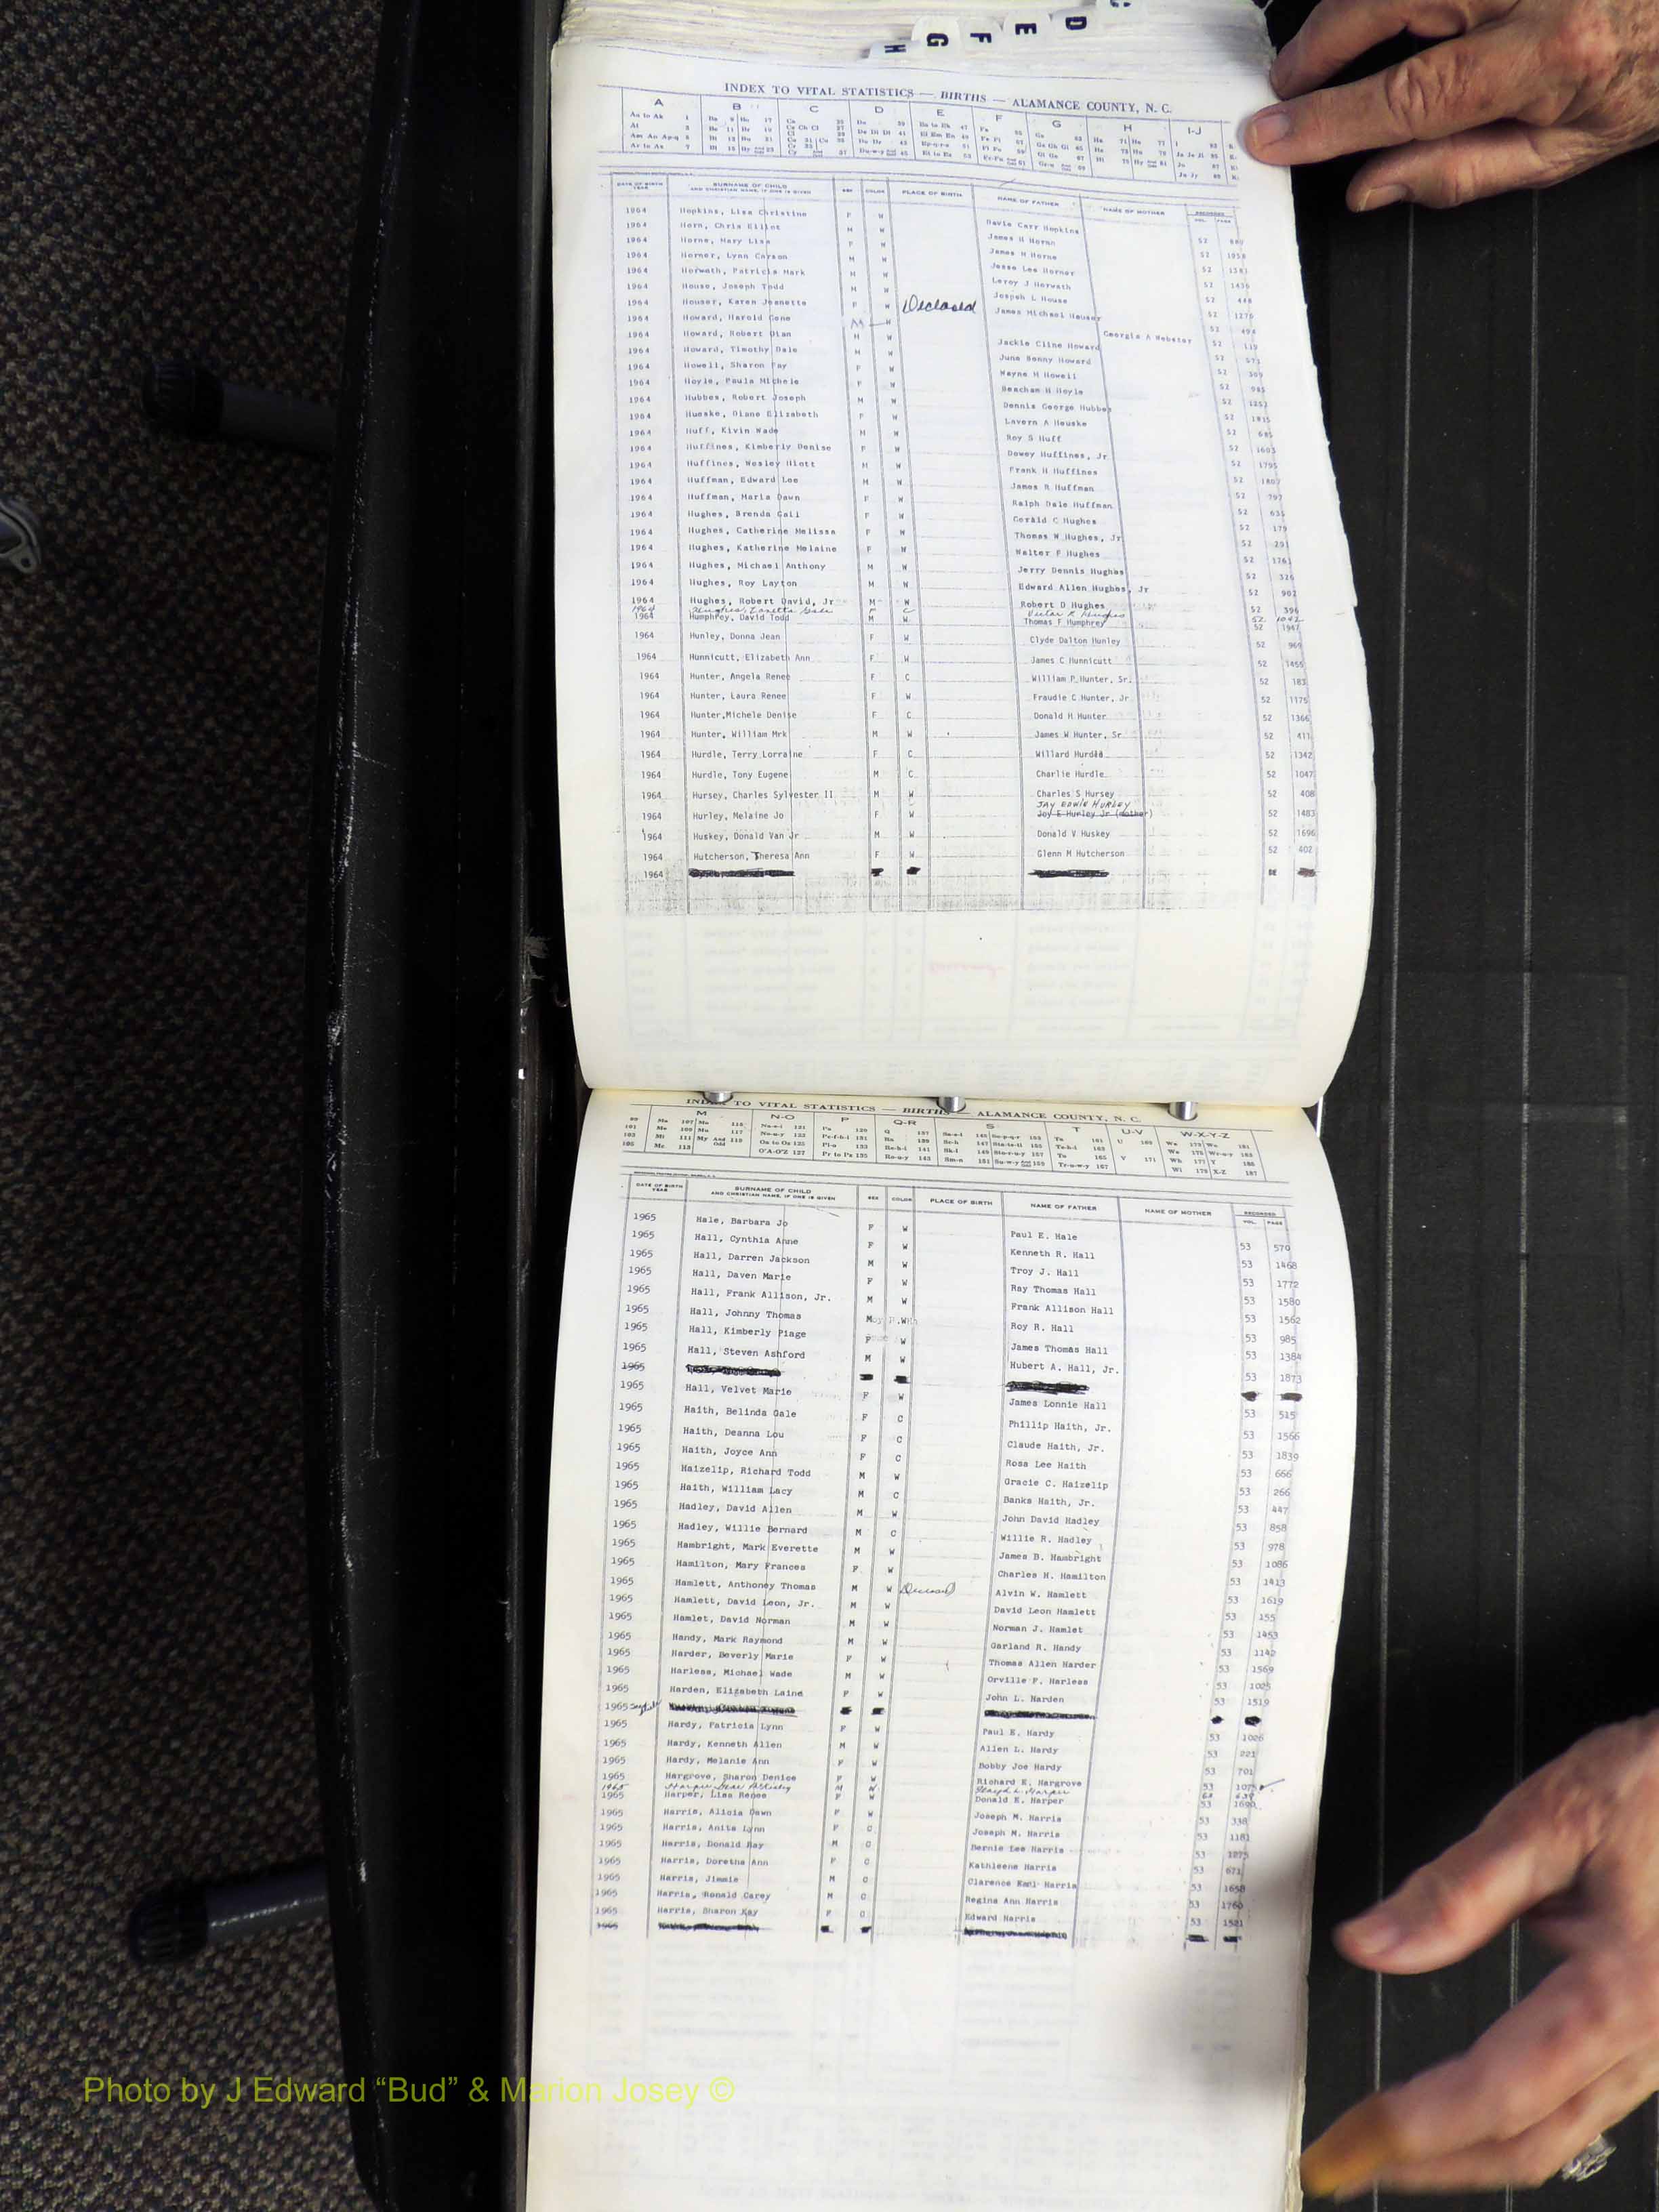 H G F E D
INDEX TO VITAL STATISTICS — BIRTHS — ALAMANCE COUNTY, N. C.
A B C D E F G H I-J
DATE OF BIRTH YEAR SURNAME OF CHILD AND CHRISTIAN NAME, IF ONE IS GIVEN SEX COLOR PLACE OF BIRTH NAME OF FATHER NAME OF MOTHER RECORDED VOL. PAGE
1964 Hopkins, Lisa Christine F W Davis Carr Hopkins 52
1964 Horn, Chris Elliot M W James H Horn 52
1964 Horne, Mary Lisa F W James H Horne 52
1964 Horner, Lynn Carson M W Jesse Lee Horner 52
1964 Horwath, Patricia Mark M W Leroy J Horwath 52
1964 House, Joseph Todd M W Jospeh L House 52
1964 Houser, Karen Jeanette F W Deceased James Michael Houser 52
1964 Howard, Harold Gene M W Georgia A Webster 52
1964 Howard, Robert Dian M W Jackie Cline Howard 52
1964 Howard, Timothy Dale M W June Benny Howard 52
1964 Howell, Sharon Fay F W Wayne H Howell 52
1964 Hoyle, Paula Michele F W Beacham H Hoyle 52
1964 Hubbes, Robert Joseph M W Dennis George Hubbes 52
1964 Hueske, Diane Elizabeth F W Lavern A Heuske 52
1964 Huff, Kivin Wade M W Roy S Huff 52
1964 Huffines, Kimberly Denise F W Dewey Huffines, Jr 52
1964 Huffines, Wesley Hiott M W Frank H Huffines 52
1964 Huffman, Edward Lee M W James R Huffman 52
1964 Huffman, Maria Dawn F W Ralph Dale Huffman 52 797
1964 Hughes, Brenda Gail F W Gerald C Hughes 52
1964 Hughes, Catherine Melissa F W Thomas W Hughes, Jr 52 179
1964 Hughes, Katherine Melaine F W Walter F Hughes 52 291
1964 Hughes, Michael Anthony M W Jerry Dennis Hughes 52
1964 Hughes, Roy Layton M W Edward Allen Hughes, Jr 52
1964 Hughes, Robert David, Jr M W Robert D Hughes 52 396
1964 Hughes, Gale F C Hughes 52 1042
1964 Humphrey, David Todd M W Thomas F Humphrey 52
1964 Hunley, Donna Jean F W Clyde Dalton Hunley 52
1964 Hunnicutt, Elizabeth Ann F W James C Hunnicutt 52 1455
1964 Hunter, Angela Renee F C William P Hunter, Sr. 52 183
1964 Hunter, Laura Renee F W Fraudie C Hunter, Jr 52 1175
1964 Hunter,Michele Denise F C Donald H Hunter 52 1366
1964 Hunter, William Mrk M W James W Hunter, Sr 52 411
1964 Hurdle, Terry Lorraine F C Willard Hurdle 52 1342
1964 Hurdle, Tony Eugene M C Charlie Hurdle 52 1047
1964 Hursey, Charles Sylvester II M W Charles S Hursey 52 408
JAY EDWIN HURLEY
1964 Hurley, Melaine Jo F W Joy E Hurley Jr (mother) 52 1483
1964 Huskey, Donald Van Jr M W Donald V Huskey 52 1696
1964 Hutcherson, Theresa Ann F W Glenn M Hutcherson 52 402
1964
INDEX TO VITAL STATISTICS — BIRTHS — ALAMANCE COUNTY, N. C.
M N-O P Q-R S T U-V W-X-Y-Z
DATE OF BIRTH YEAR SURNAME OF CHILD AND CHRISTIAN NAME, IF ONE IS GIVEN SEX COLOR PLACE OF BIRTH NAME OF FATHER NAME OF MOTHER RECORDED VOL. PAGE
1965 Hale, Barbara Jo F W Paul E. Hale 53 570
1965 Hall, Cynthia Anne F W Kenneth R. Hall 53 1468
1965 Hall, Darren Jackson M W Troy J. Hall 53 1772
1965 Hall, Daven Marie F W Ray Thomas Hall 53 1580
1965 Hall, Frank Allison, Jr. M W Frank Allison Hall 53 1562
1965 Hall, Johnny Thomas M W Roy R. Hall 53 985
1965 Hall, Kimberly Piage F W James Thomas Hall 53 1384
1965 Hall, Steven Ashford M W Hubert A. Hall, Jr. 53 1873
1965
1965 Hall, Velvet Marie F W James Lonnie Hall 53 515
1965 Haith, Belinda Gale F C Phillip Haith, Jr. 53 1566
1965 Haith, Deanna Lou F C Claude Haith, Jr. 53 1839
1965 Haith, Joyce Ann F C Rosa Lee Haith 53 666
1965 Haizelip, Richard Todd M W Gracie C. Haizelip 53 266
1965 Haith, William Lacy M C Banks Haith, Jr. 53 447
1965 Hadley, David Allen M W John David Hadley 53 858
1965 Hadley, Willie Bernard M C Willie R. Hadley 53 978
1965 Hambright, Mark Everette M W James B. Hambright 53 1086
1965 Hamilton, Mary Frances F W Charles H. Hamilton 53 1413
1965 Hamlett, Anthoney Thomas M W Deceased Alvin W. Hamlett 53 1619
1965 Hamlett, David Leon, Jr. M W David Leon Hamlett 53 155
1965 Hamlet, David Norman M W Norman J. Hamlet 53 1453
1965 Handy, Mark Raymond M W Garland R. Handy 53 1142
1965 Harder, Beverly Marie F W Thomas Allen Harder 53 1569
1965 Harless, Michael Wade M W Orville F. Harless 53 1025
1965 Harden, Elizabeth Laine F W John L. Harden 53 1519
1965
1965 Hardy, Patricia Lynn F W Paul E. Hardy 53 1026
1965 Hardy, Kenneth Allen M W Allen L. Hardy 53 221
1965 Hardy, Melanie Ann F W Bobby Joe Hardy 53 701
1965 Hargrove, Sharon Denice F W Richard E. Hargrove 53
1965 Harper M W Harper
1965 Harper, Lisa Renee F W Donald E. Harper 53 1690
1965 Harris, Alicia Dawn F W Joseph M. Harris 53 338
1965 Harris, Anita Lynn F C Joseph M. Harris 53 1181
1965 Harris, Donald Ray M C Bernie Lee Harris 53 1275
1965 Harris, Doretha Ann F C Kathleene Harris 53 671
1965 Harris, Jimmie M C Clarence Earl Harris 53 1658
1965 Harris, Ronald Carey M C Regina Ann Harris 53 1760
1965 Harris, Sharon Kay F C Edward Harris 53 1521
1965
Photo by J Edward “Bud” & Marion Josey ©